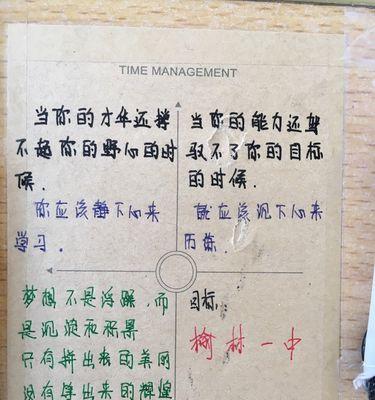 TIME MANAGEMENT
当你的才华还撑
不起你的野心的时
候.
你应该静下心来
学习.
当你的能力还驾
驭不了你的目标
的时候.
就应该沉下心来
历练.
梦想不是浮躁,而
是沉淀和积累
只有拼出来的美丽
没有等出来的辉煌
目标:
榆林一中